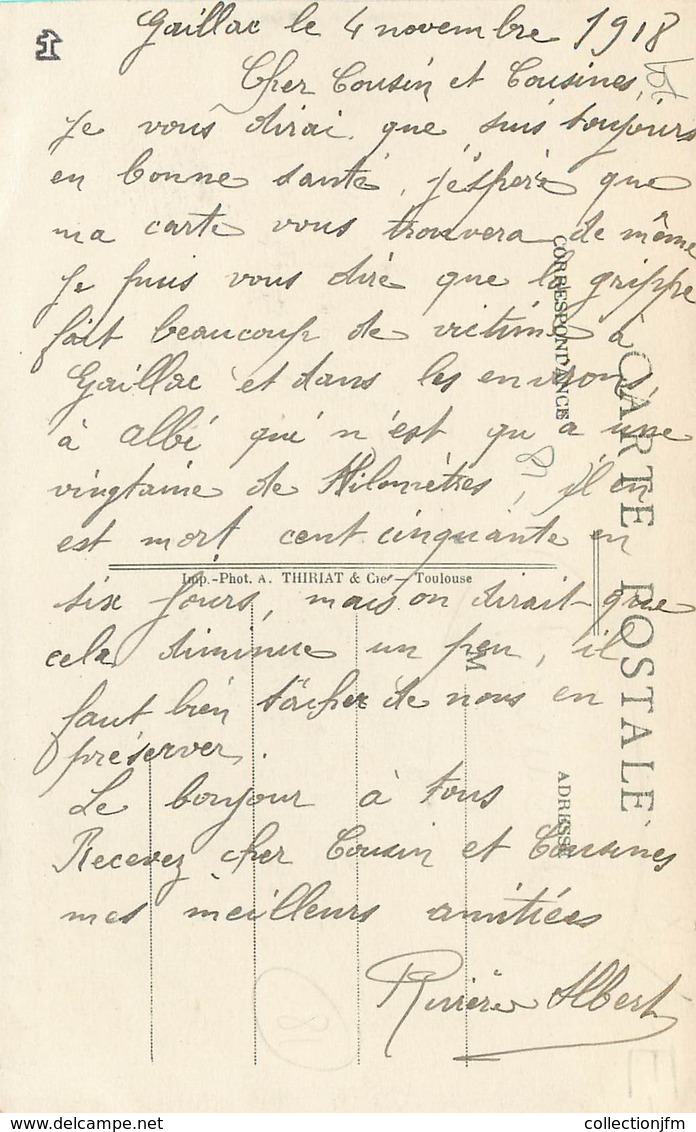 Gaillac le 4 novembre 1918
Cher Cousin et Cousines,
Je vous dirai que suis toujours
en bonne santé, j'éspère que
ma carte vous trouvera de même
Je puis vous dire que la grippe
fait beaucoup de victime à
Gaillac et dans les environs
à Albi qui n'est qu'a une
vingtaine de Kilomètres, il en
est mort cent cinquante en
six jours, mais on dirait que
cela diminue un peu, il
faut bien tâcher de nous en
préserver.
Le bonjour à tous
Recevez cher Cousin et Cousines
mes meilleurs amitiées
Rivière Albert
CARTE POSTALE
CORRESPONDANCE
ADRESSE
M
Imp.-Phot. A. THIRIAT & Cie — Toulouse
81
81
collectionjfm